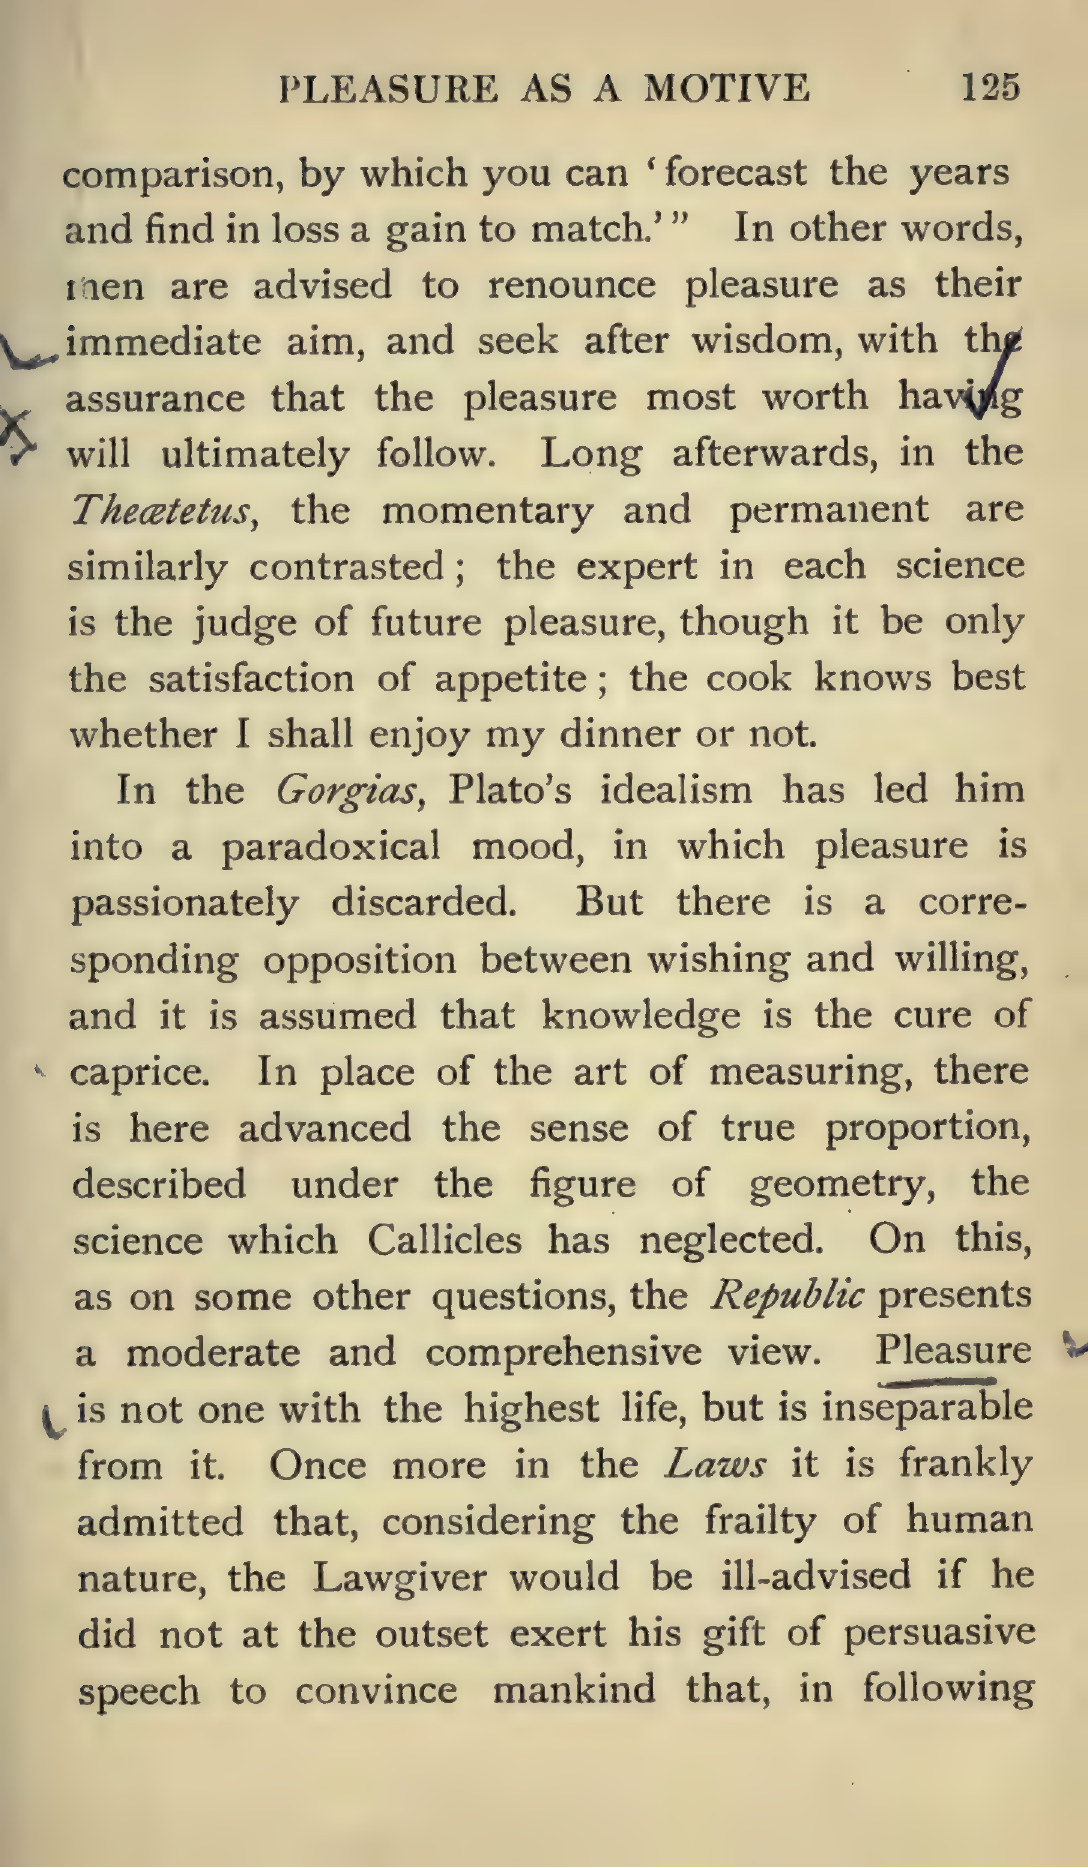 PLEASURE AS A MOTIVE 125
comparison, by which you can ‘forecast the years
and find in loss a gain to match.’” In other words,
men are advised to renounce pleasure as their
immediate aim, and seek after wisdom, with the
assurance that the pleasure most worth having
will ultimately follow. Long afterwards, in the
Theætetus, the momentary and permanent are
similarly contrasted; the expert in each science
is the judge of future pleasure, though it be only
the satisfaction of appetite; the cook knows best
whether I shall enjoy my dinner or not.
In the Gorgias, Plato’s idealism has led him
into a paradoxical mood, in which pleasure is
passionately discarded. But there is a corre-
sponding opposition between wishing and willing,
and it is assumed that knowledge is the cure of
caprice. In place of the art of measuring, there
is here advanced the sense of true proportion,
described under the figure of geometry, the
science which Callicles has neglected. On this,
as on some other questions, the Republic presents
a moderate and comprehensive view. Pleasure
is not one with the highest life, but is inseparable
from it. Once more in the Laws it is frankly
admitted that, considering the frailty of human
nature, the Lawgiver would be ill-advised if he
did not at the outset exert his gift of persuasive
speech to convince mankind that, in following